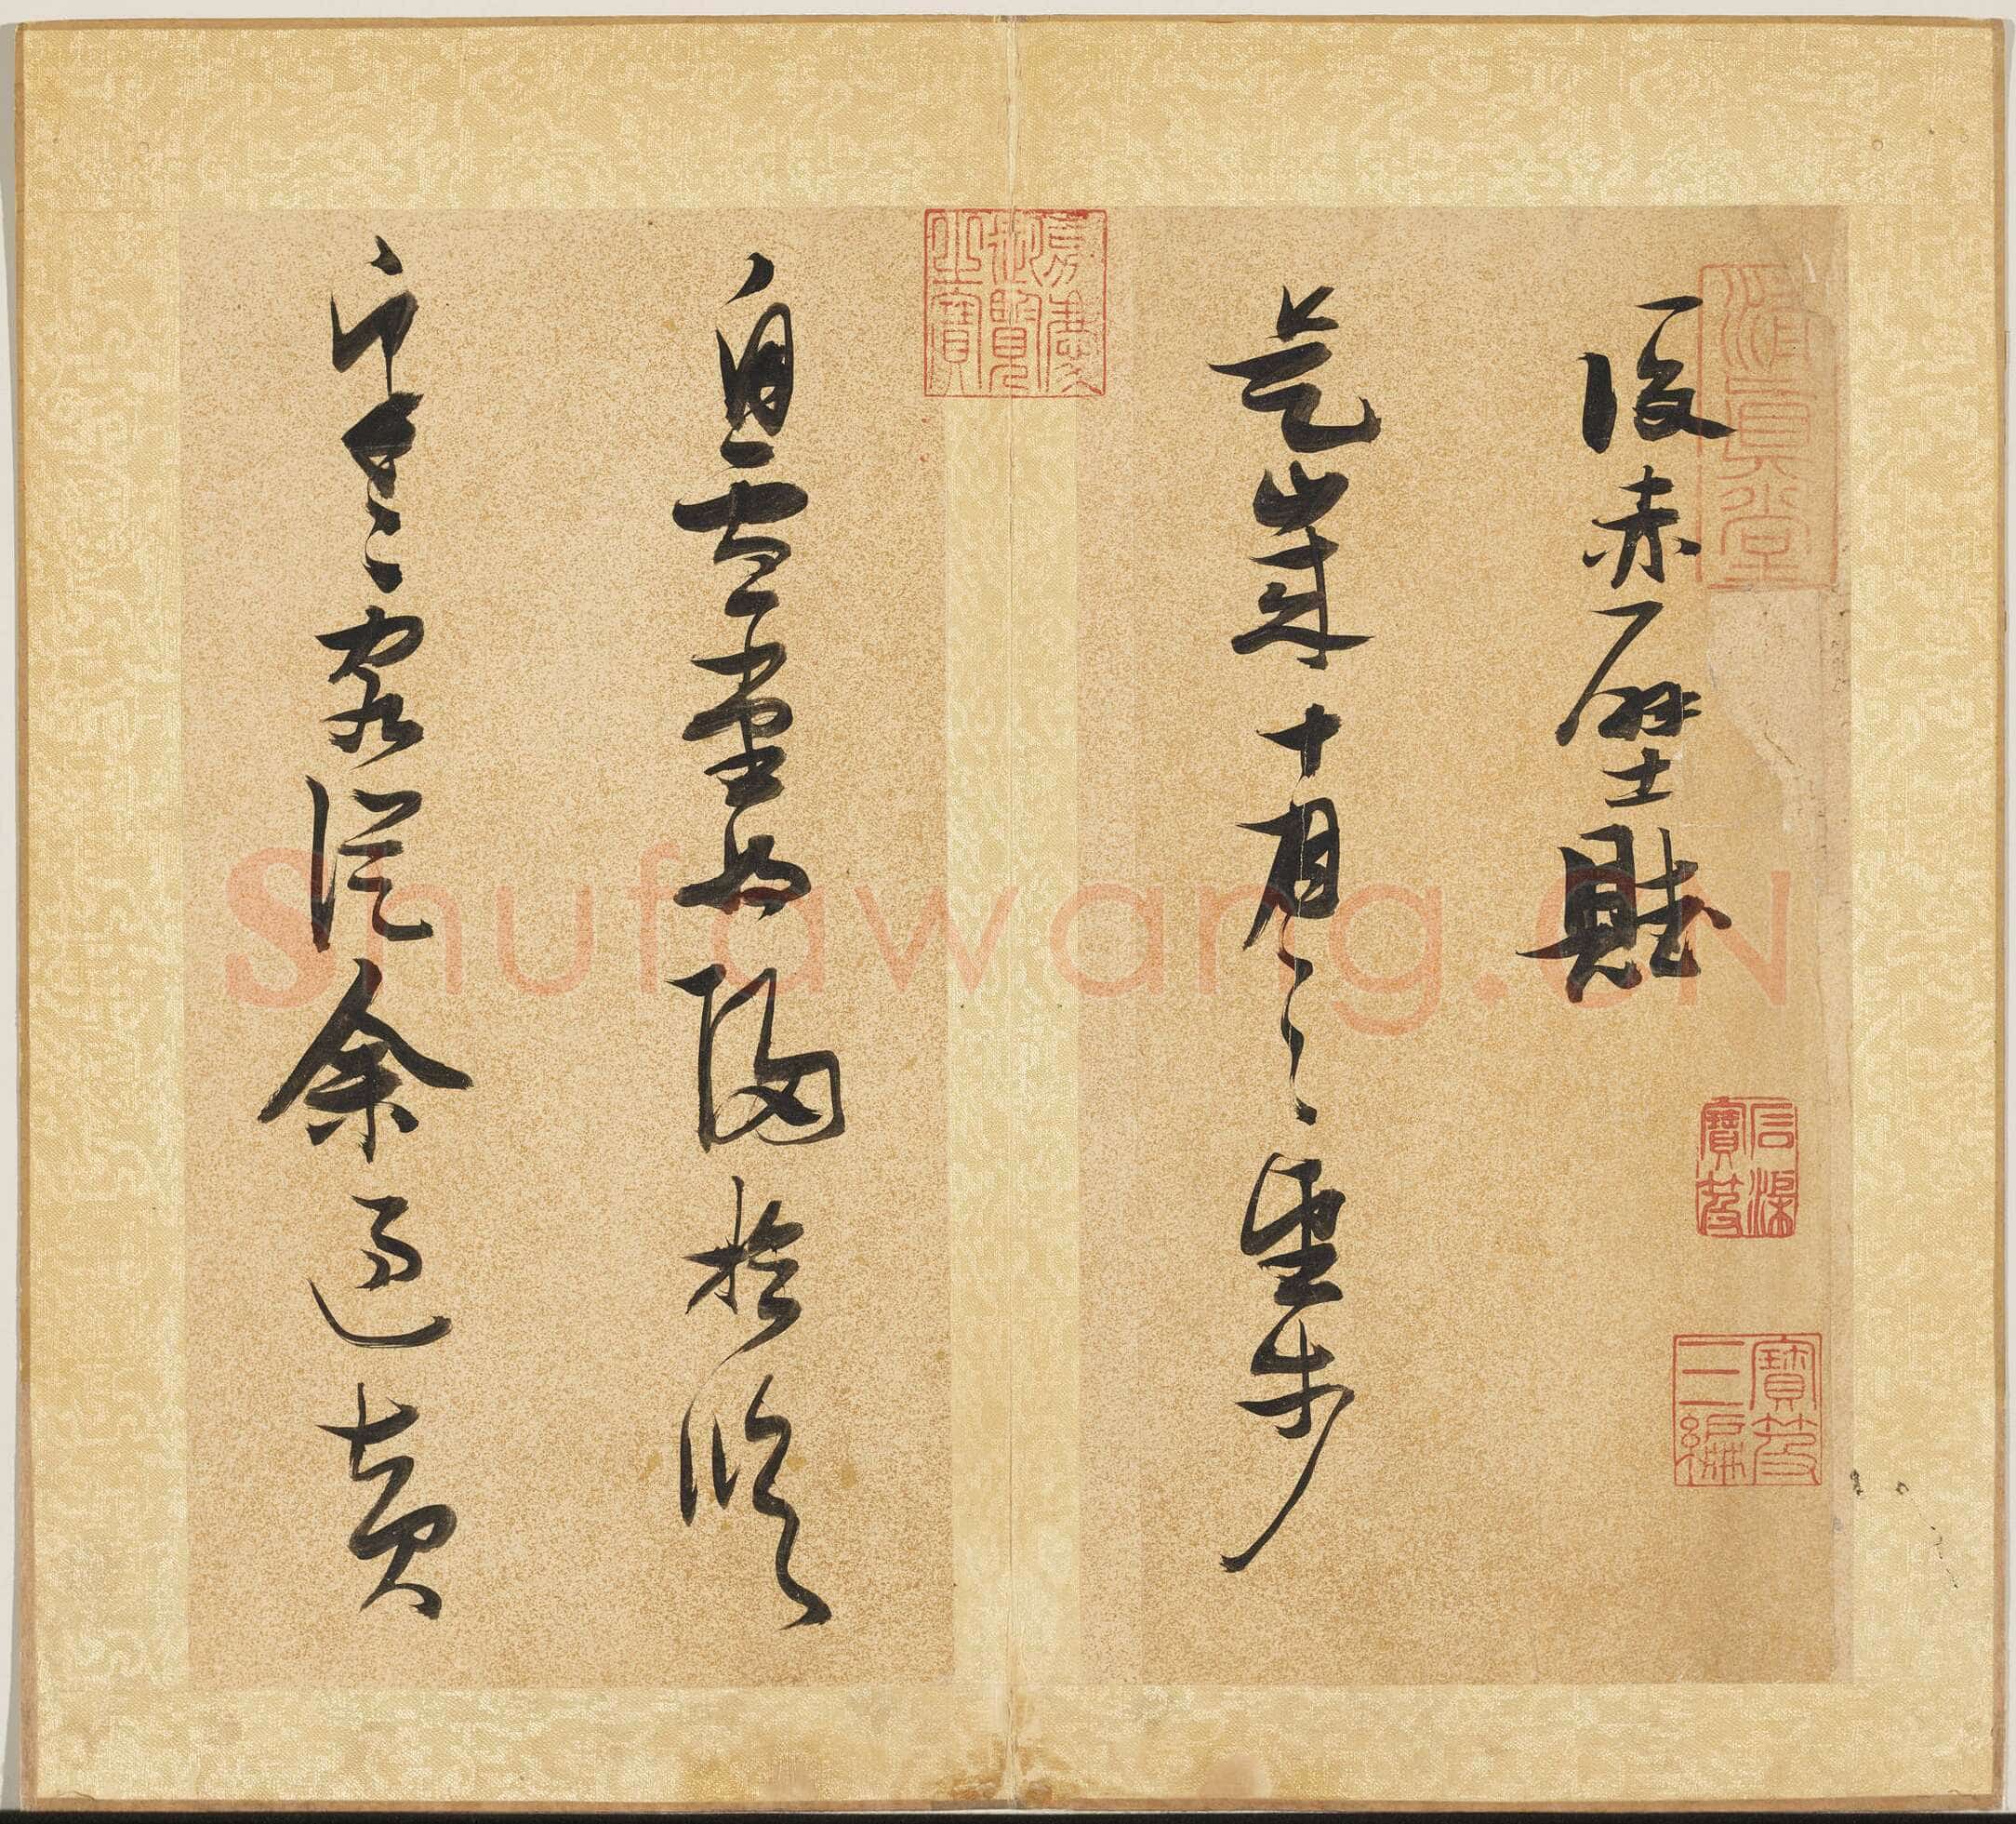 後赤壁賦
是歲十月之望步
自雪堂將歸於臨
皋二客從余過黃
嘉慶御覽之寶
清真堂
石渠寶笈
寶笈三編
Shufawang.CN